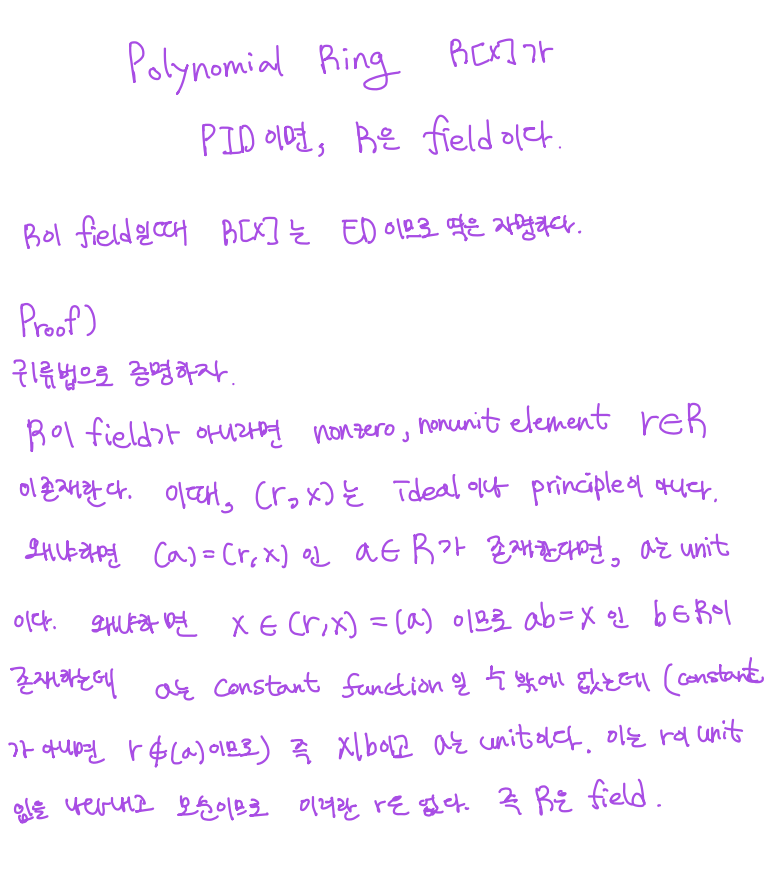 Polynomial Ring R[x]가
PID이면, R은 field이다.
R이 field일때 R[x]는 ED이므로 역은 자명하다.
Proof)
귀류법으로 증명하자.
R이 field가 아니라면 nonzero, nonunit element r∈R
이 존재한다. 이때, (r, x)는 ideal이나 principle이 아니다.
왜냐하면 (a)=(r, x) 인 a∈R가 존재한다면, a는 unit
이다. 왜냐하면 x∈(r, x)=(a) 이므로 ab=x 인 b∈R이
존재하는데 a는 constant function일 수 밖에 없는데 (constant
가 아니면 r∉(a)이므로) 즉 x|b이고 a는 unit이다. 이는 r이 unit
임을 나타내고 모순이므로 이러한 r은 없다. 즉 R은 field.